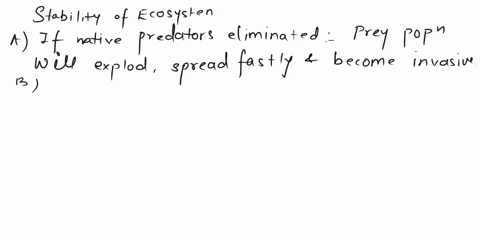 Stability of Ecosysten
A) If native predators eliminated :- Prey popⁿ
Will explod, spread fastly & become invasive
B)